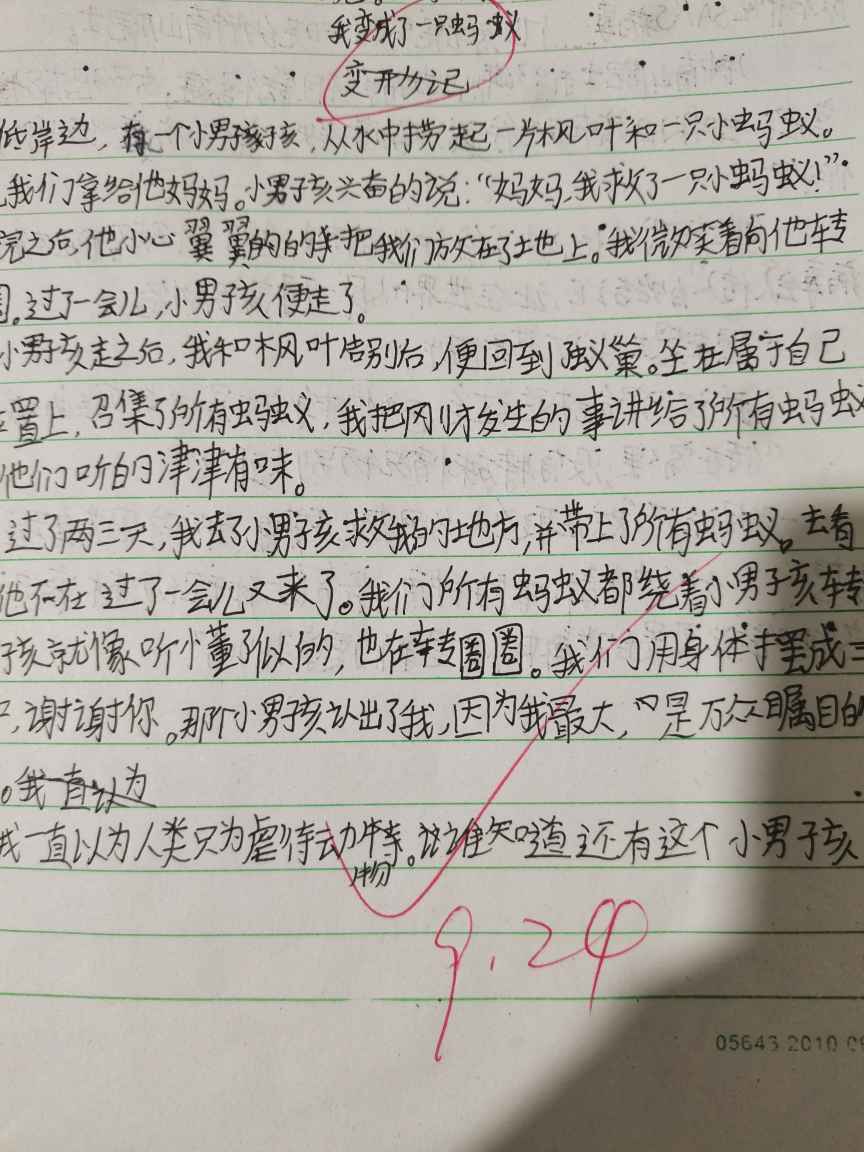 我变成了一只蚂蚁
变形记
岸边,有一个小男孩孩,从水中捞起一片枫叶和一只小蚂蚁。
我们拿给他妈妈。小男孩兴奋的说:“妈妈,我救了一只小蚂蚁!”
完之后,他小心翼翼的的把我们放在了土地上。我微笑着向他转
圈。过了一会儿,小男孩便走了。
小男孩走之后,我和枫叶告别后,便回到蚁巢。坐在属于自己
置上,召集了所有蚂蚁,我把刚才发生的事讲给了所有蚂蚁
他们听的津津有味。
过了两三天,我去了小男孩救我的地方,并带上了所有蚂蚁。去看
他不在过了一会儿又来了。我们所有蚂蚁都绕着小男孩转
孩就像听懂了似的,也在转圈圈。我们用身体摆成三
谢谢你。那个小男孩认出了我,因为我最大,是万众瞩目的
。我一直认为
我一直以为人类只为虐待动物。谁知道还有这个小男孩
9.24
05643 2010 09